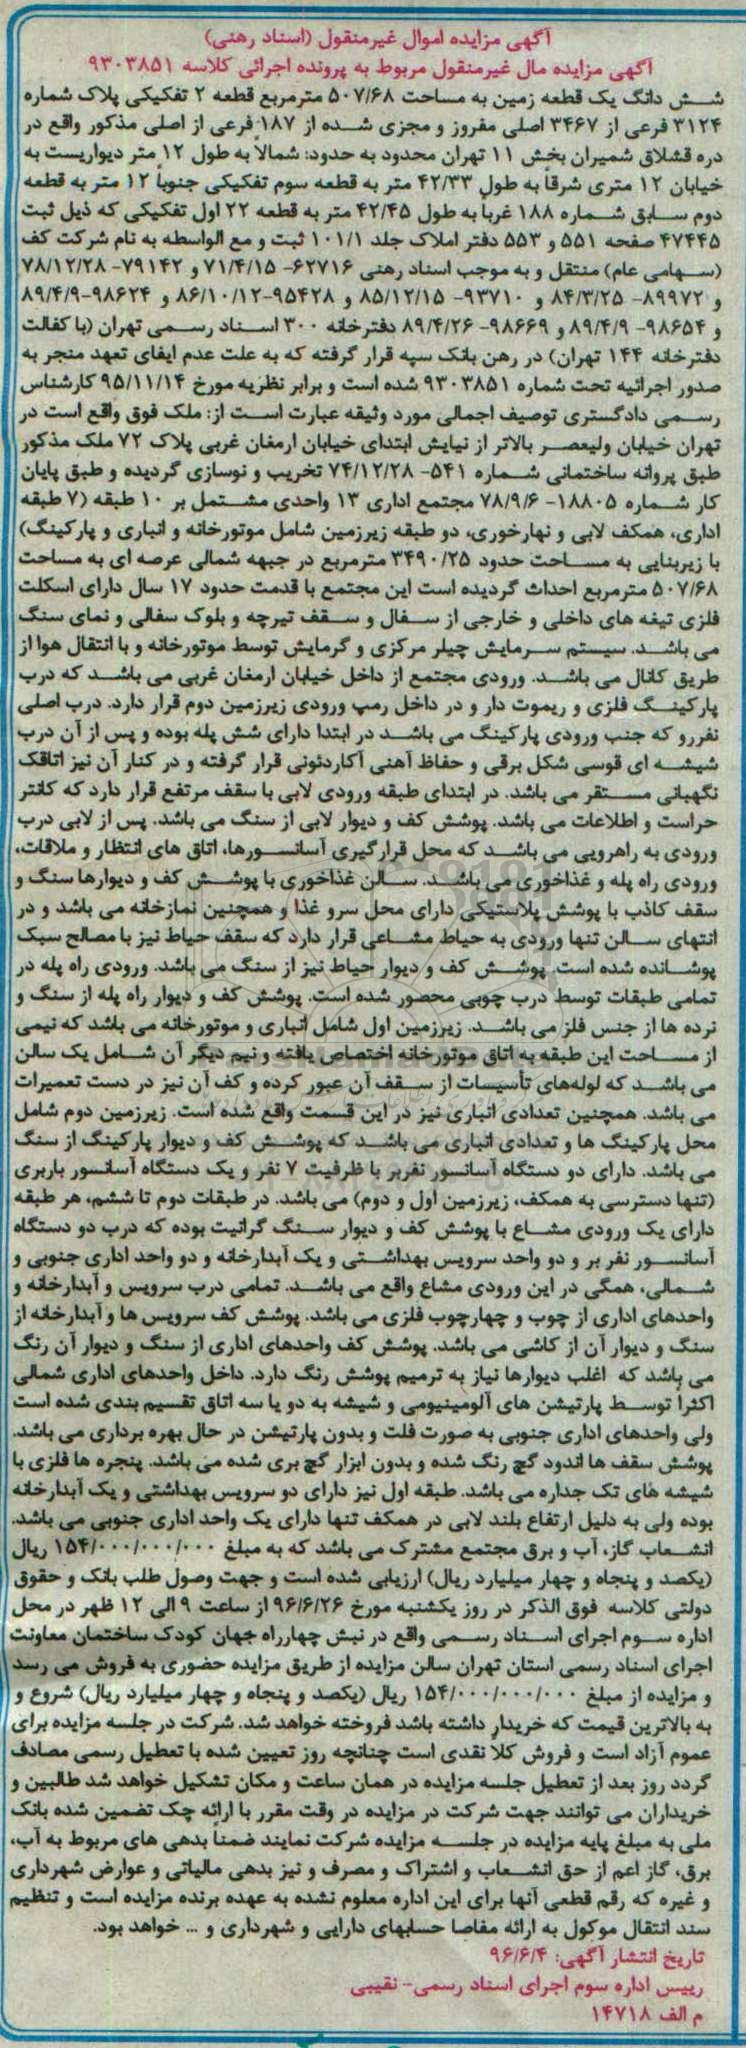 آگهی مزایده اموال غیرمنقول (اسناد رهنی)
آگهی مزایده مال غیرمنقول مربوط به پرونده اجرائی کلاسه ۹۳۰۳۸۵۱
شش دانگ یک قطعه زمین به مساحت ۵۰۷/۶۸ مترمربع قطعه ۲ تفکیکی پلاک شماره
۳۱۲۴ فرعی از ۳۴۶۷ اصلی مفروز و مجزی شده از ۱۸۷ فرعی از اصلی مذکور واقع در
دره قشلاق شمیران بخش ۱۱ تهران محدود به حدود: شمالاً به طول ۱۲ متر دیواریست به
خیابان ۱۲ متری شرقاً به طول ۴۲/۳۳ متر به قطعه سوم تفکیکی جنوباً ۱۲ متر به قطعه
دوم سابق شماره ۱۸۸ غرباً به طول ۴۲/۴۵ متر به قطعه ۲۲ اول تفکیکی که ذیل ثبت
۴۷۴۴۵ صفحه ۵۵۱ و ۵۵۳ دفتر املاک جلد ۱۰۱/۱ ثبت و مع الواسطه به نام شرکت کف
(سهامی عام) منتقل و به موجب اسناد رهنی ۶۲۷۱۶- ۷۱/۴/۱۵ و ۷۹۱۴۲- ۷۸/۱۲/۲۸
و ۸۹۹۷۲- ۸۴/۳/۲۵ و ۹۳۷۱۰- ۸۵/۱۲/۱۵ و ۹۵۴۲۸-۸۶/۱۰/۱۲ و ۹۸۶۲۴-۸۹/۴/۹
و ۹۸۶۵۴- ۸۹/۴/۹ و ۹۸۶۶۹- ۸۹/۴/۲۶ دفترخانه ۳۰۰ اسناد رسمی تهران (با کفالت
دفترخانه ۱۴۴ تهران) در رهن بانک سپه قرار گرفته که به علت عدم ایفای تعهد منجر به
صدور اجرائیه تحت شماره ۹۳۰۳۸۵۱ شده است و برابر نظریه مورخ ۹۵/۱۱/۱۴ کارشناس
رسمی دادگستری توصیف اجمالی مورد وثیقه عبارت است از: ملک فوق واقع است در
تهران خیابان ولیعصر بالاتر از نیایش ابتدای خیابان ارمغان غربی پلاک ۷۲ ملک مذکور
طبق پروانه ساختمانی شماره ۵۴۱- ۷۴/۱۲/۲۸ تخریب و نوسازی گردیده و طبق پایان
کار شماره ۱۸۸۰۵- ۷۸/۹/۶ مجتمع اداری ۱۳ واحدی مشتمل بر ۱۰ طبقه (۷ طبقه
اداری، همکف لابی و نهارخوری، دو طبقه زیرزمین شامل موتورخانه و انباری و پارکینگ)
با زیربنایی به مساحت حدود ۳۴۹۰/۲۵ مترمربع در جبهه شمالی عرصه ای به مساحت
۵۰۷/۶۸ مترمربع احداث گردیده است این مجتمع با قدمت حدود ۱۷ سال دارای اسکلت
فلزی تیغه های داخلی و خارجی از سفال و سقف تیرچه و بلوک سفالی و نمای سنگ
می باشد. سیستم سرمایش چیلر مرکزی و گرمایش توسط موتورخانه و با انتقال هوا از
طریق کانال می باشد. ورودی مجتمع از داخل خیابان ارمغان غربی می باشد که درب
پارکینگ فلزی و ریموت دار و در داخل رمپ ورودی زیرزمین دوم قرار دارد. درب اصلی
نفررو که جنب ورودی پارکینگ می باشد در ابتدا دارای شش پله بوده و پس از آن درب
شیشه ای قوسی شکل برقی و حفاظ آهنی آکاردئونی قرار گرفته و در کنار آن نیز اتاقک
نگهبانی مستقر می باشد. در ابتدای طبقه ورودی لابی با سقف مرتفع قرار دارد که کانتر
حراست و اطلاعات می باشد. پوشش کف و دیوار لابی از سنگ می باشد. پس از لابی درب
ورودی به راهرویی می باشد که محل قرارگیری آسانسورها، اتاق های انتظار و ملاقات،
ورودی راه پله و غذاخوری می باشد. سالن غذاخوری با پوشش کف و دیوارها سنگ و
سقف کاذب با پوشش پلاستیکی دارای محل سرو غذا و همچنین نمازخانه می باشد و در
انتهای سالن تنها ورودی به حیاط مشاعی قرار دارد که سقف حیاط نیز با مصالح سبک
پوشانده شده است. پوشش کف و دیوار حیاط نیز از سنگ می باشد. ورودی راه پله در
تمامی طبقات توسط درب چوبی محصور شده است. پوشش کف و دیوار راه پله از سنگ و
نرده ها از جنس فلز می باشد. زیرزمین اول شامل انباری و موتورخانه می باشد که نیمی
از مساحت این طبقه به اتاق موتورخانه اختصاص یافته و نیم دیگر آن شامل یک سالن
می باشد که لوله‌های تأسیسات از سقف آن عبور کرده و کف آن نیز در دست تعمیرات
می باشد. همچنین تعدادی انباری نیز در این قسمت واقع شده است. زیرزمین دوم شامل
محل پارکینگ ها و تعدادی انباری می باشد که پوشش کف و دیوار پارکینگ از سنگ
می باشد. دارای دو دستگاه آسانسور نفربر با ظرفیت ۷ نفر و یک دستگاه آسانسور باربری
(تنها دسترسی به همکف، زیرزمین اول و دوم) می باشد. در طبقات دوم تا ششم، هر طبقه
دارای یک ورودی مشاع با پوشش کف و دیوار سنگ گرانیت بوده که درب دو دستگاه
آسانسور نفر بر و دو واحد سرویس بهداشتی و یک آبدارخانه و دو واحد اداری جنوبی و
شمالی، همگی در این ورودی مشاع واقع می باشد. تمامی درب سرویس و آبدارخانه و
واحدهای اداری از چوب و چهارچوب فلزی می باشد. پوشش کف سرویس ها و آبدارخانه از
سنگ و دیوار آن از کاشی می باشد. پوشش کف واحدهای اداری از سنگ و دیوار آن رنگ
می باشد که اغلب دیوارها نیاز به ترمیم پوشش رنگ دارد. داخل واحدهای اداری شمالی
اکثراً توسط پارتیشن های آلومینیومی و شیشه به دو یا سه اتاق تقسیم بندی شده است
ولی واحدهای اداری جنوبی به صورت فلت و بدون پارتیشن در حال بهره برداری می باشد.
پوشش سقف ها اندود گچ رنگ شده و بدون ابزار گچ بری شده می باشد. پنجره ها فلزی با
شیشه های تک جداره می باشد. طبقه اول نیز دارای دو سرویس بهداشتی و یک آبدارخانه
بوده ولی به دلیل ارتفاع بلند لابی در همکف تنها دارای یک واحد اداری جنوبی می باشد.
انشعاب گاز، آب و برق مجتمع مشترک می باشد که به مبلغ ۱۵۴/۰۰۰/۰۰۰/۰۰۰ ریال
(یکصد و پنجاه و چهار میلیارد ریال) ارزیابی شده است و جهت وصول طلب بانک و حقوق
دولتی کلاسه فوق الذکر در روز یکشنبه مورخ ۹۶/۶/۲۶ از ساعت ۹ الی ۱۲ ظهر در محل
اداره سوم اجرای اسناد رسمی واقع در نبش چهارراه جهان کودک ساختمان معاونت
اجرای اسناد رسمی استان تهران سالن مزایده از طریق مزایده حضوری به فروش می رسد
و مزایده از مبلغ ۱۵۴/۰۰۰/۰۰۰/۰۰۰ ریال (یکصد و پنجاه و چهار میلیارد ریال) شروع و
به بالاترین قیمت که خریدار داشته باشد فروخته خواهد شد. شرکت در جلسه مزایده برای
عموم آزاد است و فروش کلاً نقدی است چنانچه روز تعیین شده با تعطیل رسمی مصادف
گردد روز بعد از تعطیل جلسه مزایده در همان ساعت و مکان تشکیل خواهد شد طالبین و
خریداران می توانند جهت شرکت در مزایده در وقت مقرر با ارائه چک تضمین شده بانک
ملی به مبلغ پایه مزایده در جلسه مزایده شرکت نمایند ضمناً بدهی های مربوط به آب،
برق، گاز اعم از حق انشعاب و اشتراک و مصرف و نیز بدهی مالیاتی و عوارض شهرداری
و غیره که رقم قطعی آنها برای این اداره معلوم نشده به عهده برنده مزایده است و تنظیم
سند انتقال موکول به ارائه مفاصا حسابهای دارایی و شهرداری و ... خواهد بود.
تاریخ انتشار آگهی: ۹۶/۶/۴
رییس اداره سوم اجرای اسناد رسمی- نقیبی
م الف ۱۴۷۱۸